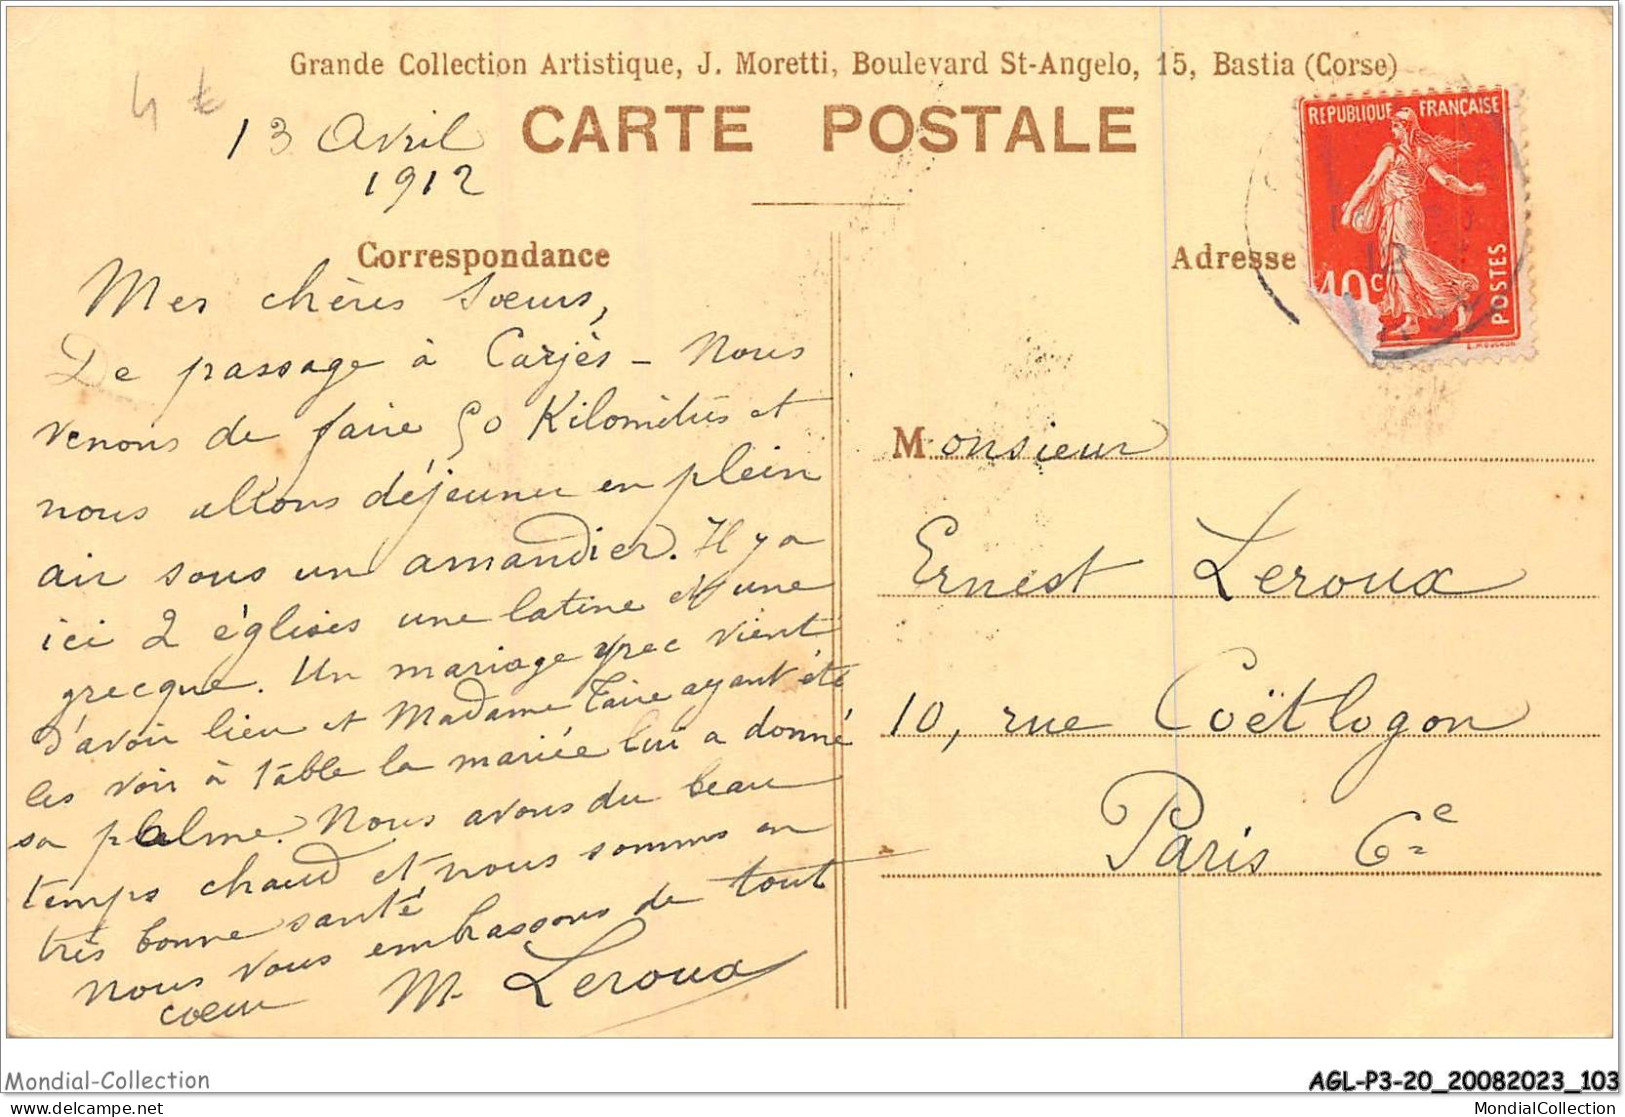 Grande Collection Artistique, J. Moretti, Boulevard St-Angelo, 15, Bastia (Corse)
4 €
13 Avril
1912
CARTE POSTALE
REPUBLIQUE FRANÇAISE
10c
POSTES
Correspondance
Adresse
Mes chères Sœurs,
De passage à Carjès - Nous
venons de faire 50 Kilomètres et
nous allons déjeuner en plein
air sous un amandier. Il y a
ici 2 églises une latine et une
grecque. Un mariage grec vient
d'avoir lieu et Madame Taire ayant été
les voir à table la mariée lui a donné
sa palme. Nous avons du beau
temps chaud et nous sommes en
très bonne santé
Nous vous embrassons de tout
coeur M. Leroux
Monsieur
Ernest Leroux
10, rue Coëtlogon
Paris 6e
Mondial-Collection
AGL-P3-20_20082023_103
delcampe.net
MondialCollection